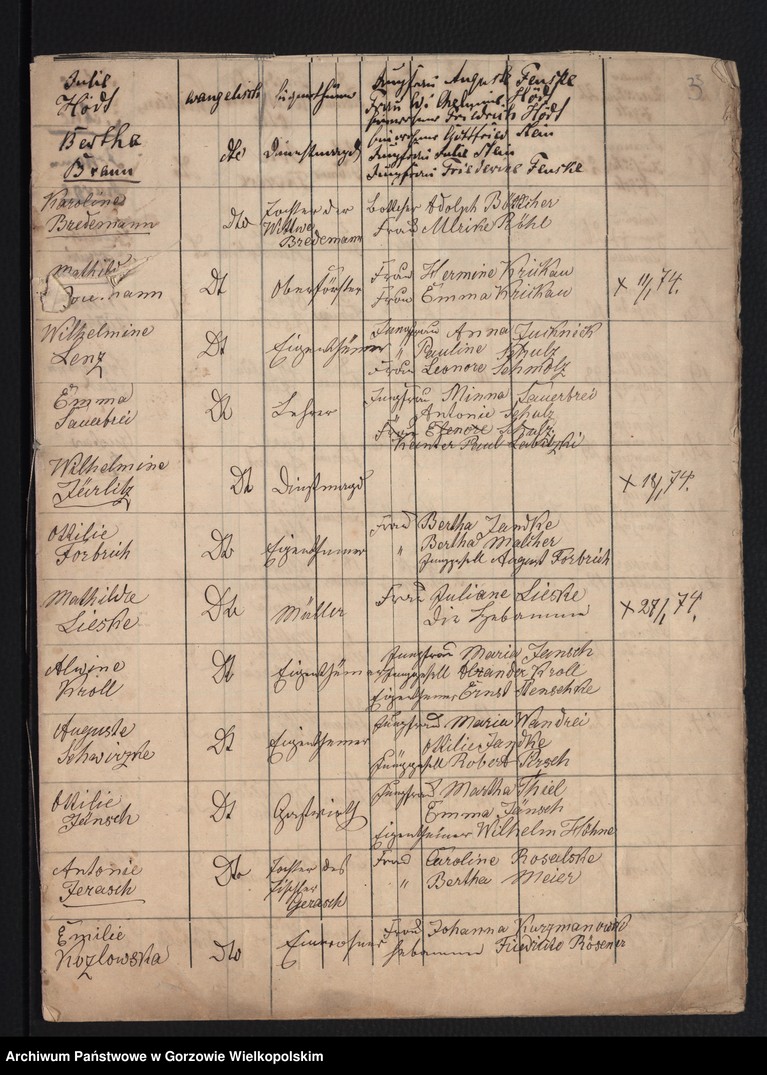 35
Julie
Hödt
evangelisch
Eigenthümer
Jungfrau Auguste Fenske
Frau Hödt
Friedrich Hödt
Bertha
Braun
dto
Dienstmagd
Gottfried
Jungfrau Julie
Jungfrau Friederike Fenske
Karoline
Bredemann
dto
Tochter der
Wittwe
Bredemann
Böttcher Adolph Böttcher
Frau Ulrike Röhl
Mathild
Dt
Oberförster
Frau Hermine Krükau
Frau Emma Krükau
+ 11/1 74.
Wilhelmine
Lenz
Dt
Eigenthümer
Jungfrau Anna
" Pauline Schulz
Frau Leonore Schmolz
Emma
Sauerbrei
Dt
Lehrer
Jungfrau Minna Sauerbrei
Antonie Schulz
Frau Schulz
Paul
Wilhelmine
Järlitz
Dt
Dienstmagd
+ 18/1 74.
Ottilie
Forbrich
Dto
Eigenthümer
Frau Bertha Jandke
" Bertha Malcher
Junggesell August Forbrich
Mathilde
Lieske
Dto
Müller
Frau Juliane Lieske
Die Hebamme
+ 28/1 74.
Alwine
Kroll
Dt
Eigenthümer
Jungfrau Maria Jänsch
Junggesell Alexander Kroll
Eigenthümer Ernst Menschke
Auguste
Schwirzke
Dt
Eigenthümer
Jungfrau Maria Wandrei
Ottilie Jandke
Junggesell Robert
Ottilie
Jänsch
Dt
Gastwirth
Jungfrau Martha Thiel
Emma Jänsch
Eigenthümer Wilhelm Höhne
Antonie
Jerasch
Dto
Tochter des
Fischer
Gerasch
Frau Caroline
" Bertha Meier
Emilie
Kozlowska
dto
Einwohner
Frau Johanna
Hebamme Rösener
Archiwum Państwowe w Gorzowie Wielkopolskim